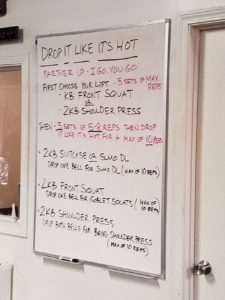 DROP IT LIKE IT'S HOT
PARTNER UP - I GO, YOU GO
FIRST CHOOSE YOUR LIFT - 5 SETS OF MAX REPS
• KB FRONT SQUAT
OR
• 2KB SHOULDER PRESS
THEN - 3 SETS OF 5-8 REPS THEN DROP
IT LIKE IT'S HOT FOR A MAX OF 10 REPS
• 2KB SUITCASE OR SUMO DL
DROP ONE BELL FOR SUMO DL (MAX OF 10 REPS)
• 2KB FRONT SQUAT
DROP ONE BELL FOR GOBLET SQUATS (MAX OF 10 REPS)
• 2KB SHOULDER PRESS
DROP BOTH BELLS FOR BAND SHOULDER PRESS
(MAX OF 10 REPS)